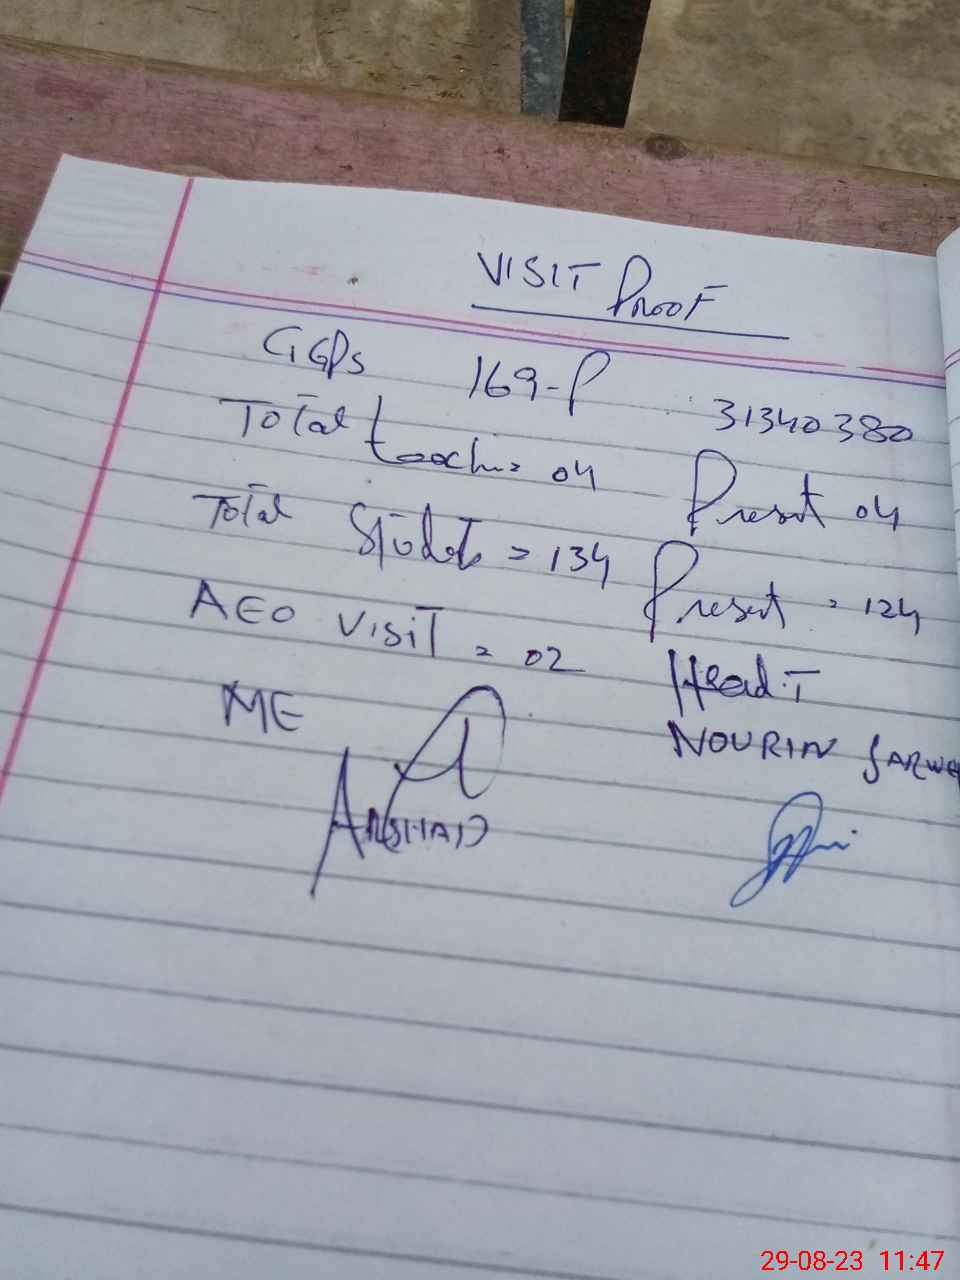 VISIT PROOF
GGPS 169-P 31340380
Total teachers 04 Present 04
Total Students = 134 Present = 124
AEO VISIT = 02 Head.T
ME NOURIN SARWE
ARSHAD
29-08-23 11:47